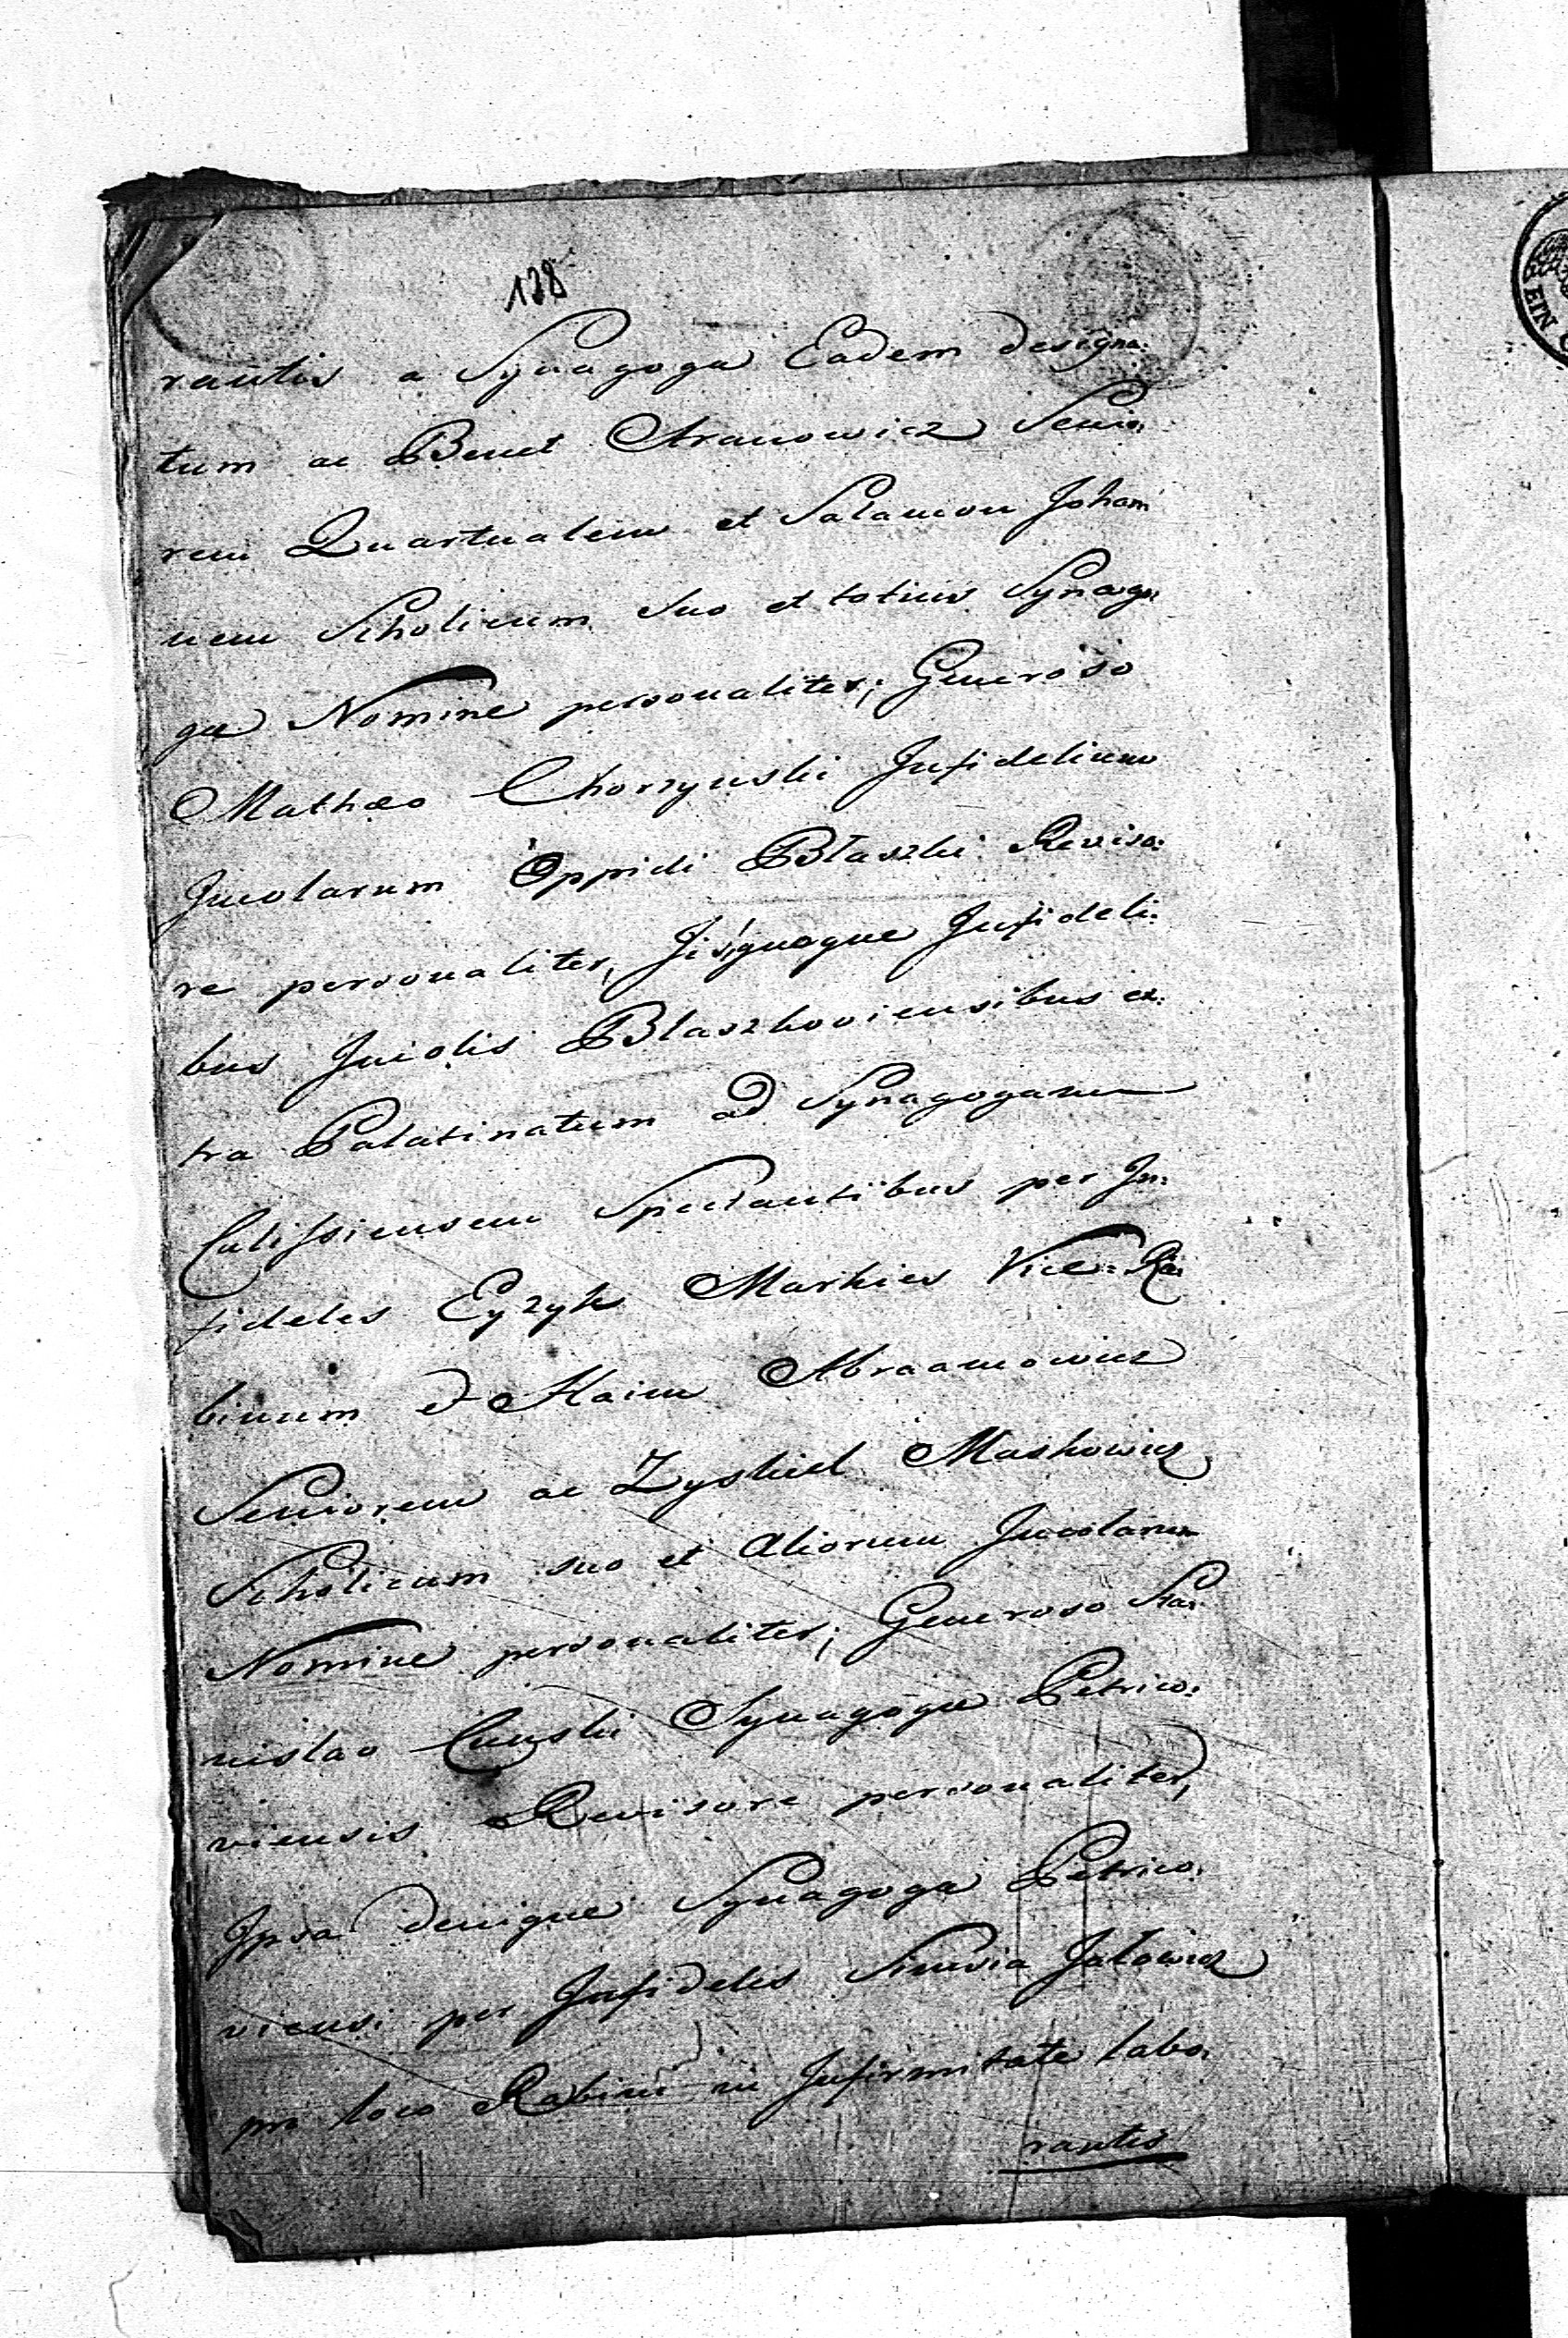 138
rantis a Synagoga Eadem designa:
tum ac Benet Aranowicz Senio
rem Quartualem et Salamon Joham
nem Scholicum suo et totius Synago
gæ Nomine personaliter; Generoso
Mathæo Chorzynski Infidelium
Incolarum Oppidi Błaszki Reviso:
re personaliter, Jisquoque Infideli:
bus Incolis Blaszkoviensibus ex:
tra Palatinatum ad Synagogam
Calissiensem Spectantibus per In:
fideles Eyzyk Markies Vice-Ra:
binum et Haim Abraamowicz
Seniorem ac Zyskiel Maskowicz
Scholicum suo et Aliorum Incolarum
Nomine personaliter; Generoso Sta:
nislao Synagogæ Petrico:
viensis Revisore personaliter,
Ipsa denique Synagoga Petrico:
viensi per Infideles Simsia Jakowicz
pro loco Rabini in Infirmitate labo:
rantis
EIN